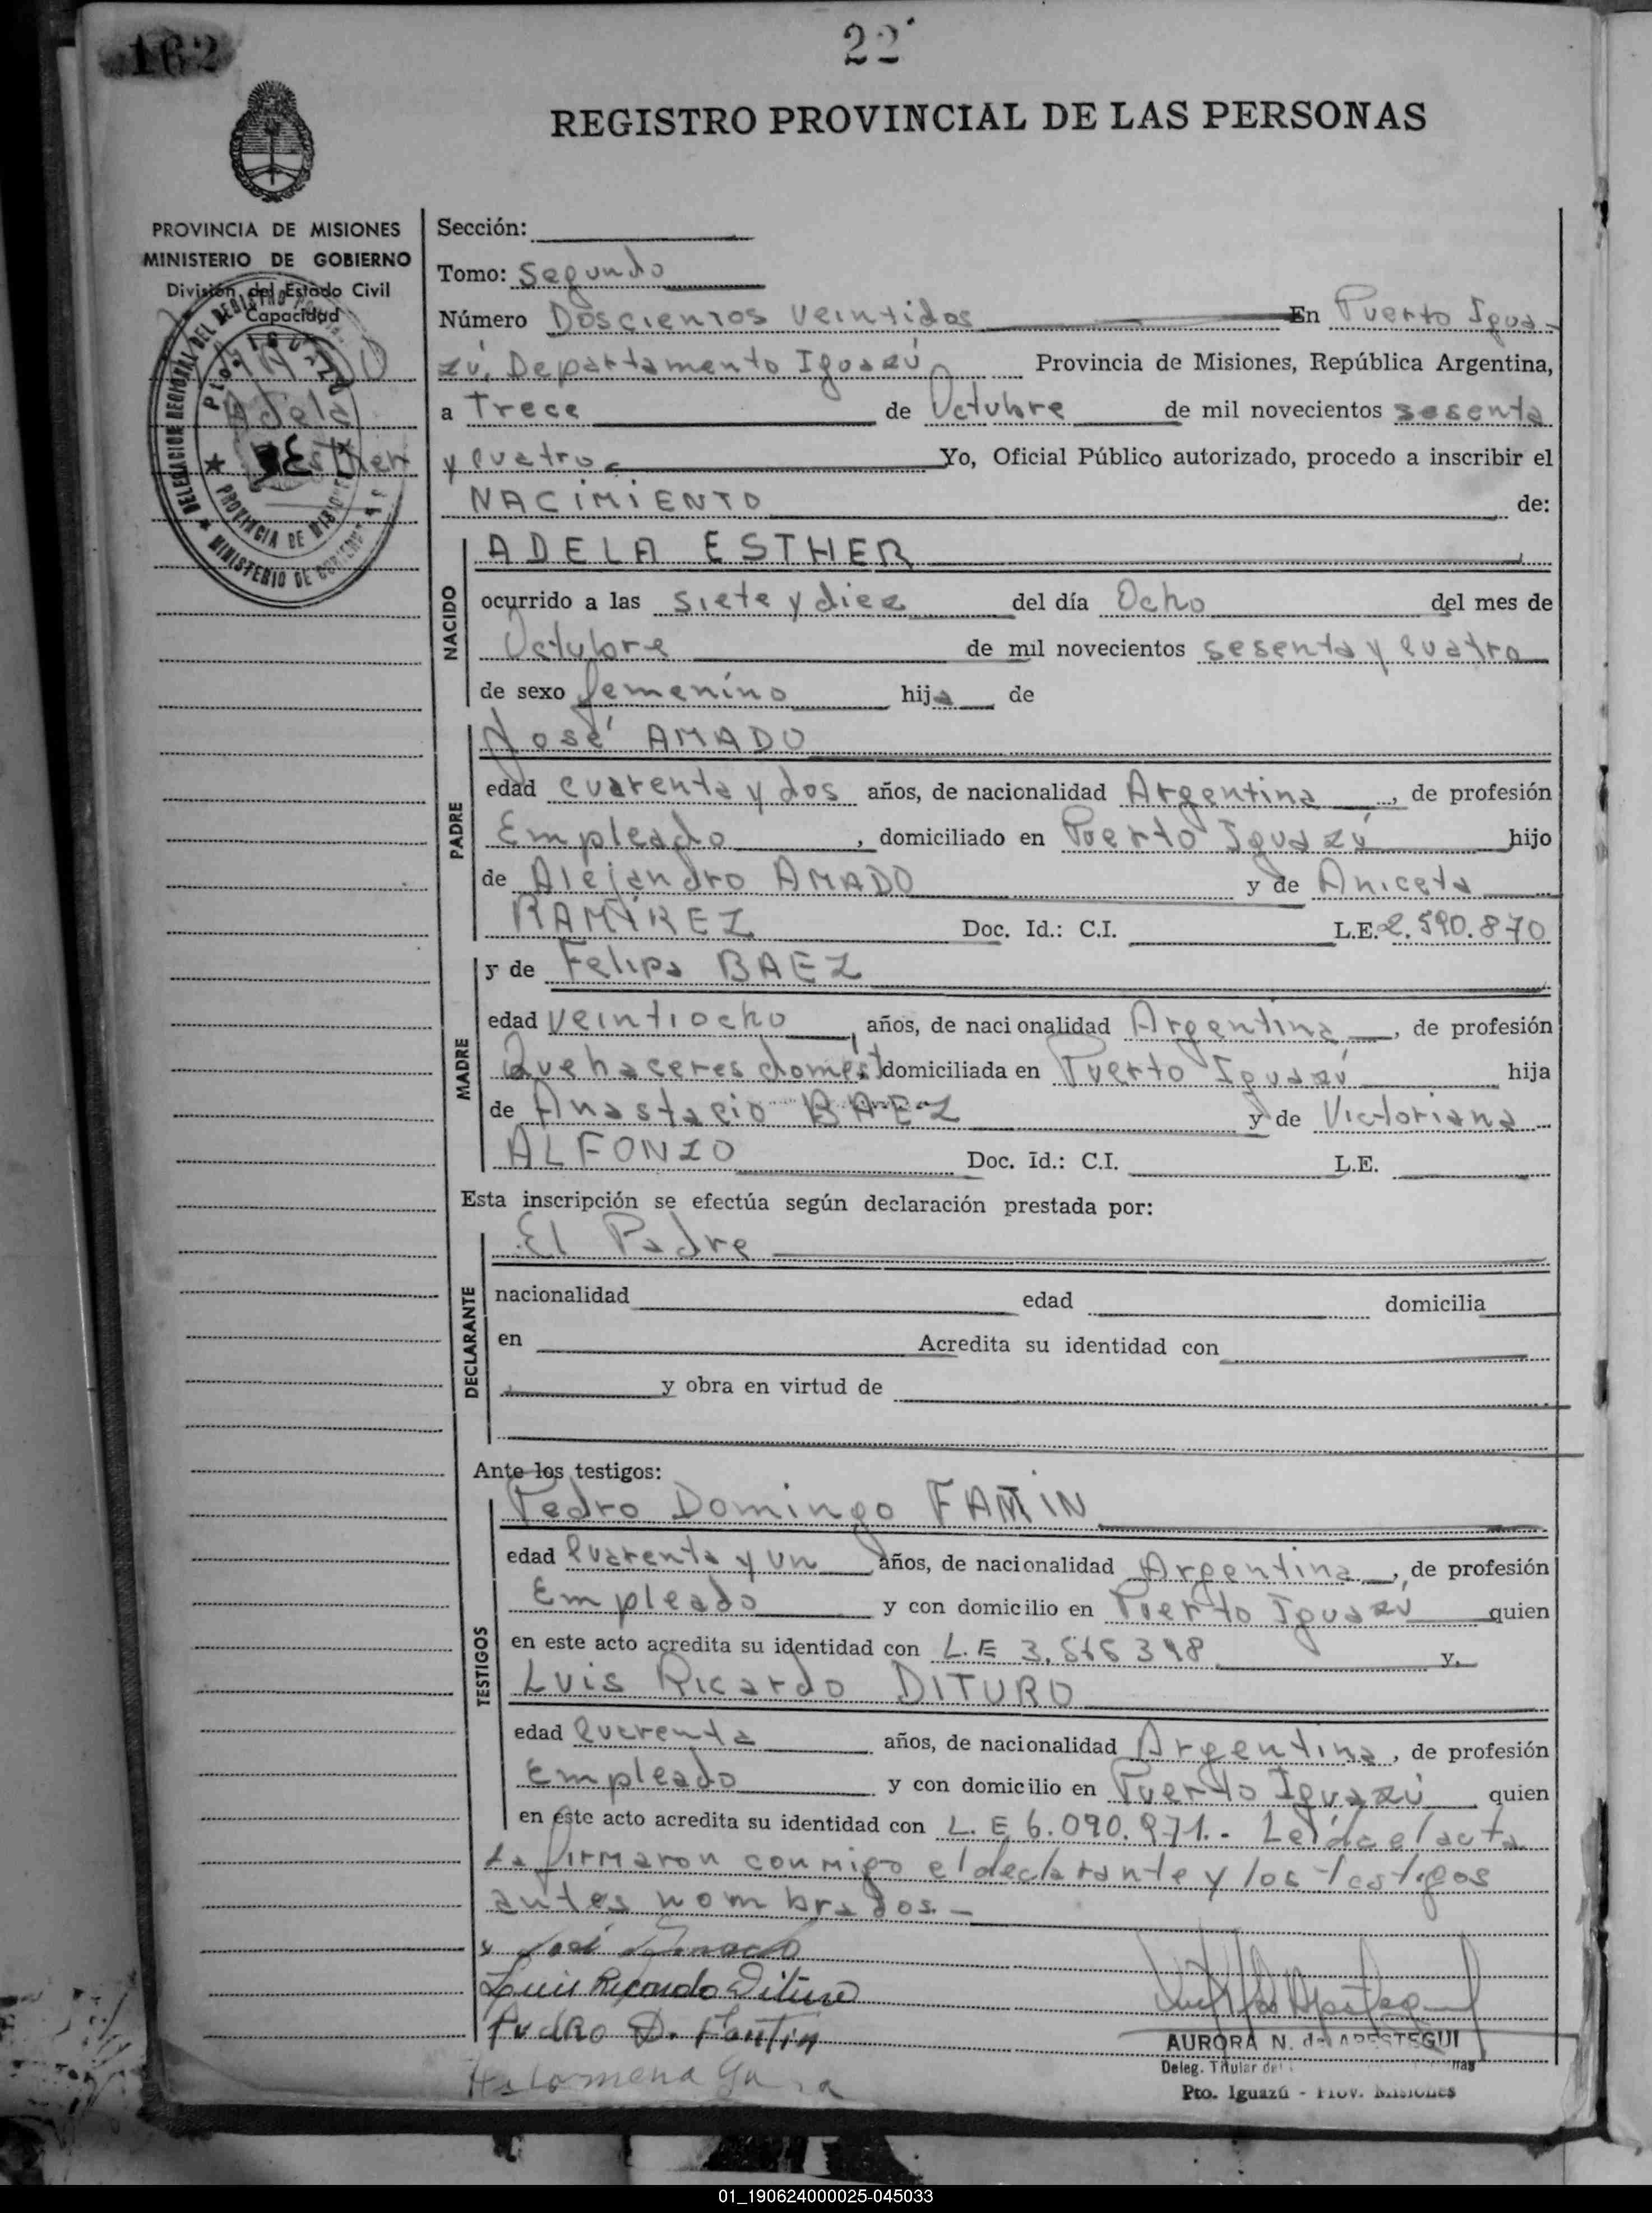 162
22
REGISTRO PROVINCIAL DE LAS PERSONAS
PROVINCIA DE MISIONES
MINISTERIO DE GOBIERNO
División del Estado Civil
y Capacidad
Adela
Esther
Sección:
Tomo: Segundo
Número Doscientos Veintidos En Puerto Igua-
zú, Departamento Iguazú Provincia de Misiones, República Argentina,
a Trece de Octubre de mil novecientos sesenta
y cuatro Yo, Oficial Público autorizado, procedo a inscribir el
NACIMIENTO de:
NACIDO
ADELA ESTHER
ocurrido a las siete y diez del día Ocho del mes de
Octubre de mil novecientos sesenta y cuatro
de sexo femenino hija de
PADRE
José AMADO
edad cuarenta y dos años, de nacionalidad Argentina, de profesión
Empleado, domiciliado en Puerto Iguazú hijo
de Alejandro AMADO y de Aniceta
RAMÍREZ Doc. Id.: C.I. L.E. 2.590.870
MADRE
y de Felipa BAEZ
edad veintiocho, años, de nacionalidad Argentina, de profesión
Quehaceres domést. domiciliada en Puerto Iguazú hija
de Anastacio BAEZ y de Victoriana
ALFONZO Doc. Id.: C.I. L.E.
Esta inscripción se efectúa según declaración prestada por:
DECLARANTE
El Padre
nacionalidad edad domicilia
en Acredita su identidad con
y obra en virtud de
Ante los testigos:
TESTIGOS
Pedro Domingo FANTIN
edad Cuarenta y un años, de nacionalidad Argentina, de profesión
Empleado y con domicilio en Puerto Iguazú quien
en este acto acredita su identidad con L.E y.
Luis Ricardo DITURO
edad Cuarenta años, de nacionalidad Argentina, de profesión
Empleado y con domicilio en Puerto Iguazú quien
en este acto acredita su identidad con L.E 6.090.971.- Leída el acta
la firmaron conmigo el declarante y los testigos
antes nombrados.-
x José Amado
Luis Ricardo Dituro
Pedro D. Fantin
AURORA N. de APESTEGUI
Deleg. Titular
Pto. Iguazú - Prov. Misiones
01_190624000025-045033